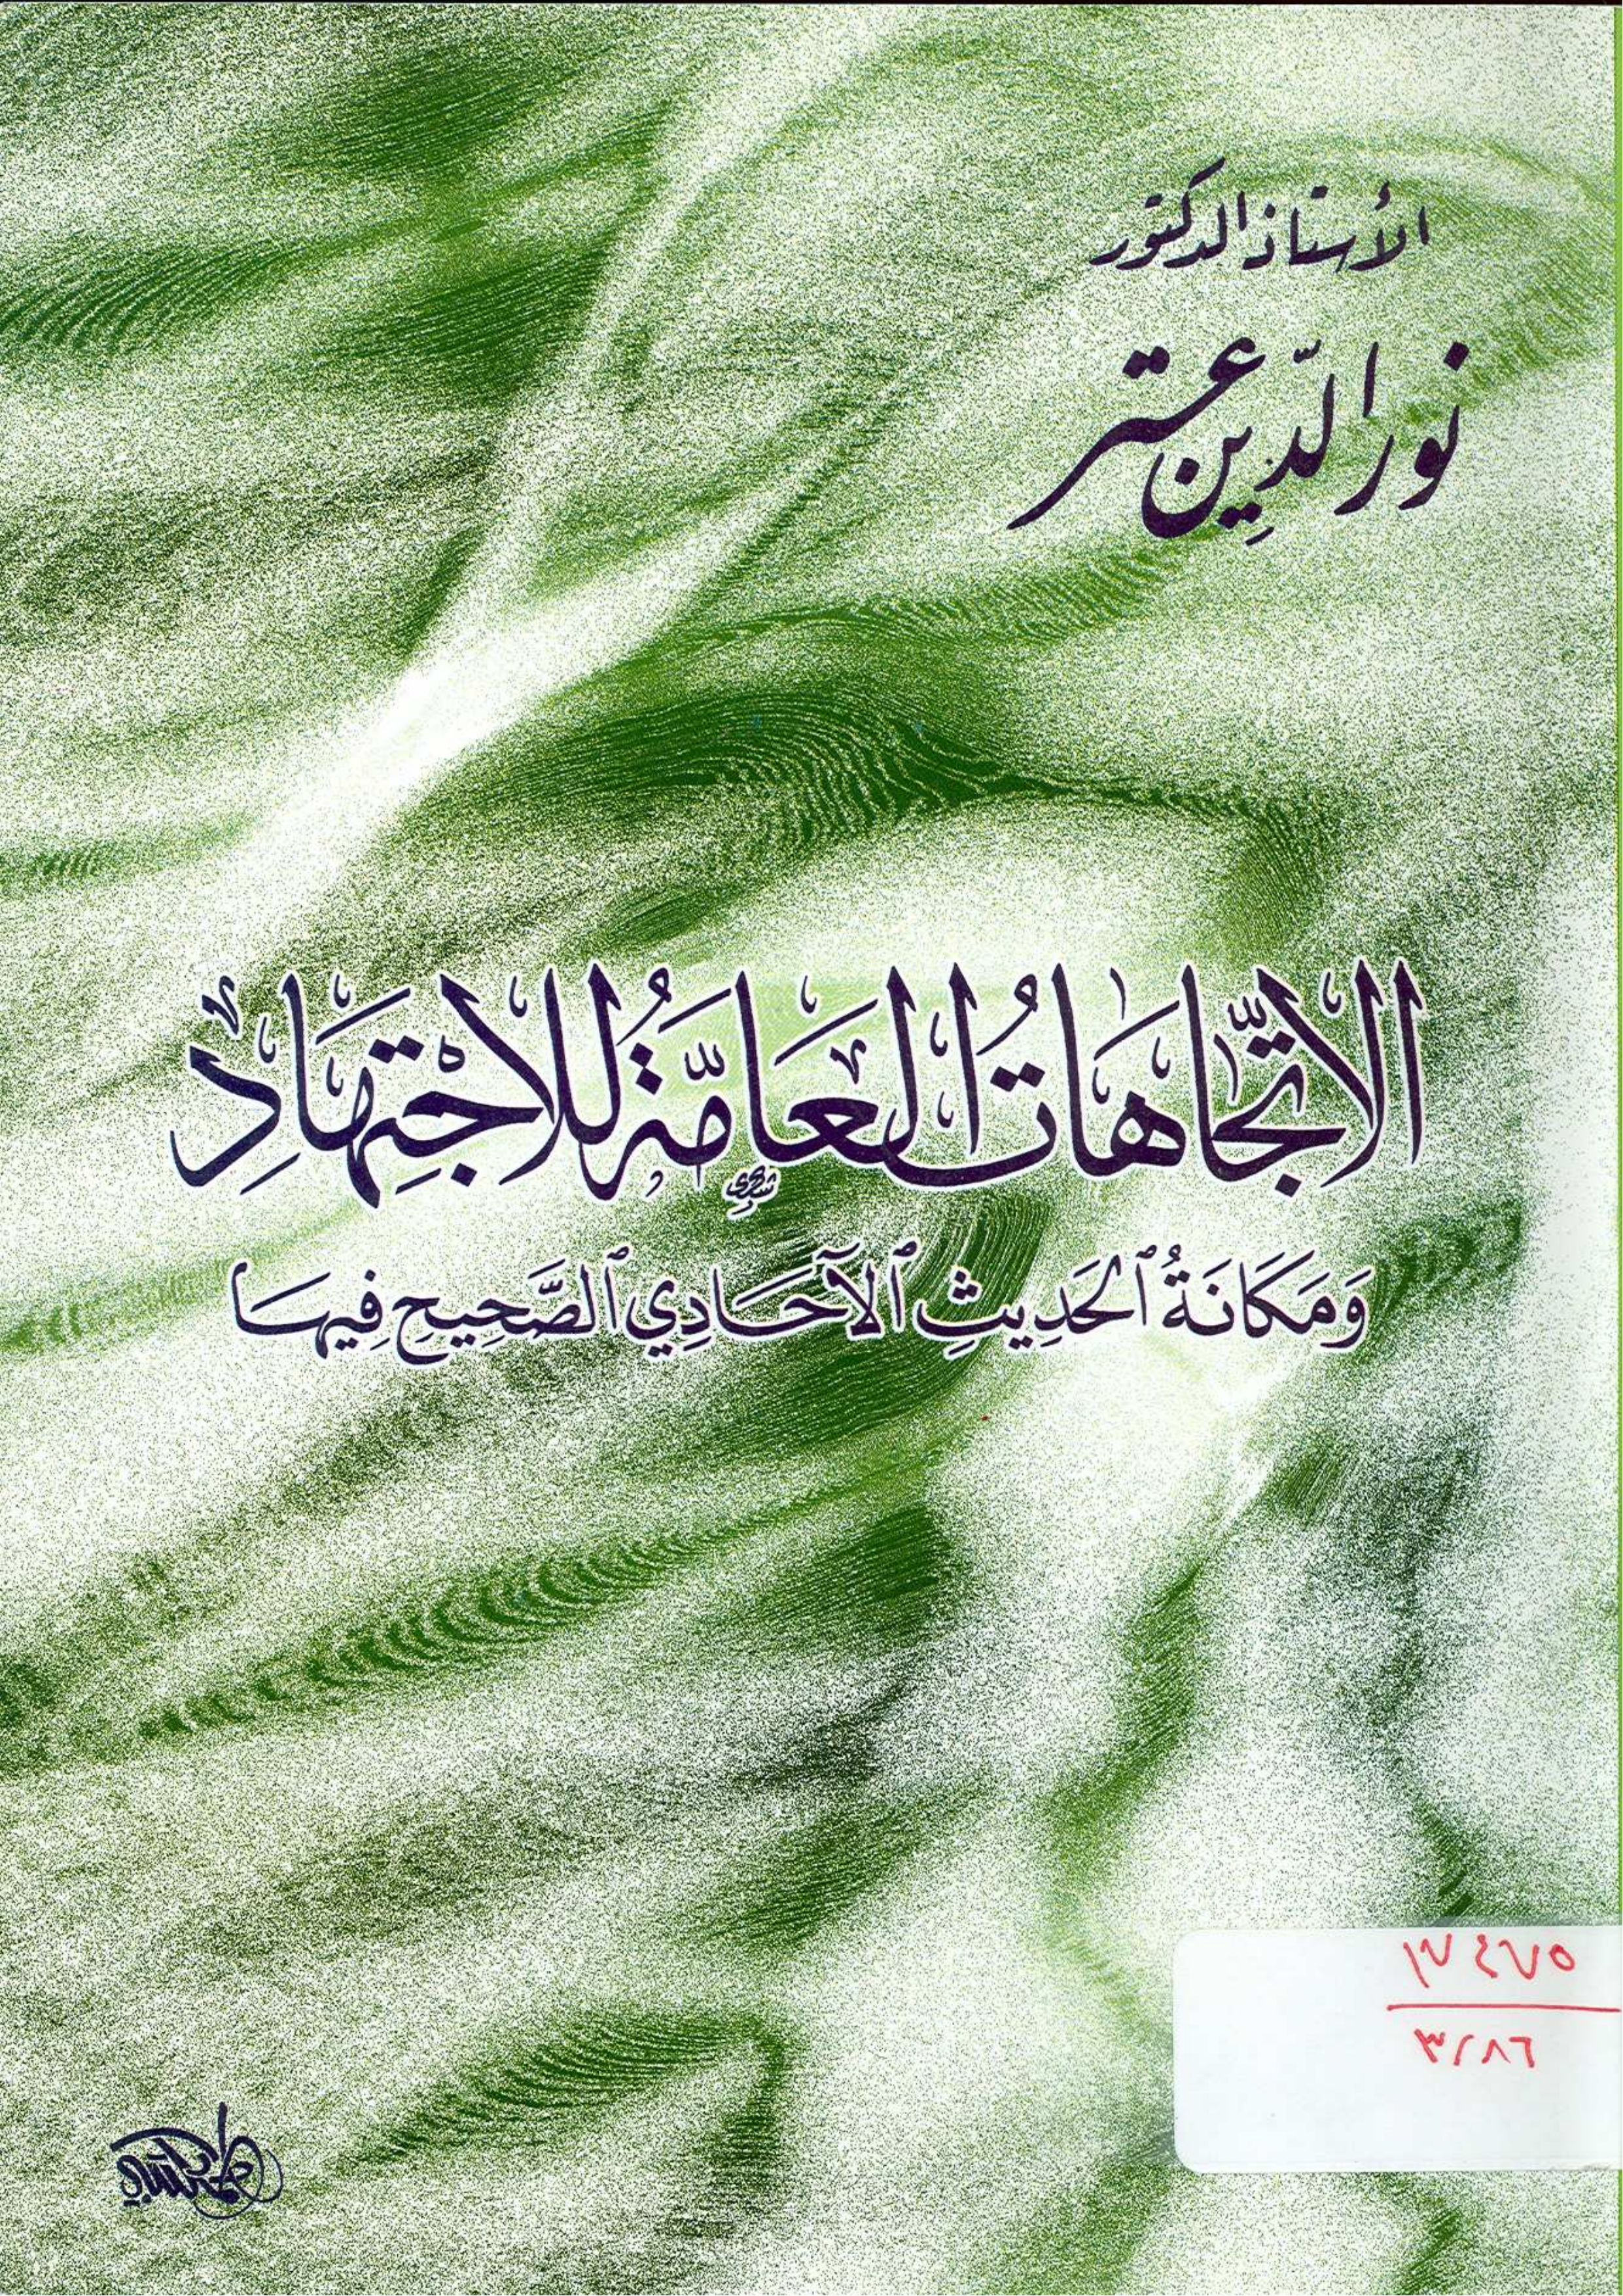 الأستاذ الدكتور
نور الدّين عتر
الاتّجَاهَاتُ العَامَّةُ للاجْتِهَادِ
وَمَكَانَةُ ٱلحَدِيثِ ٱلآحَادِي ٱلصَّحِيحِ فِيهَا